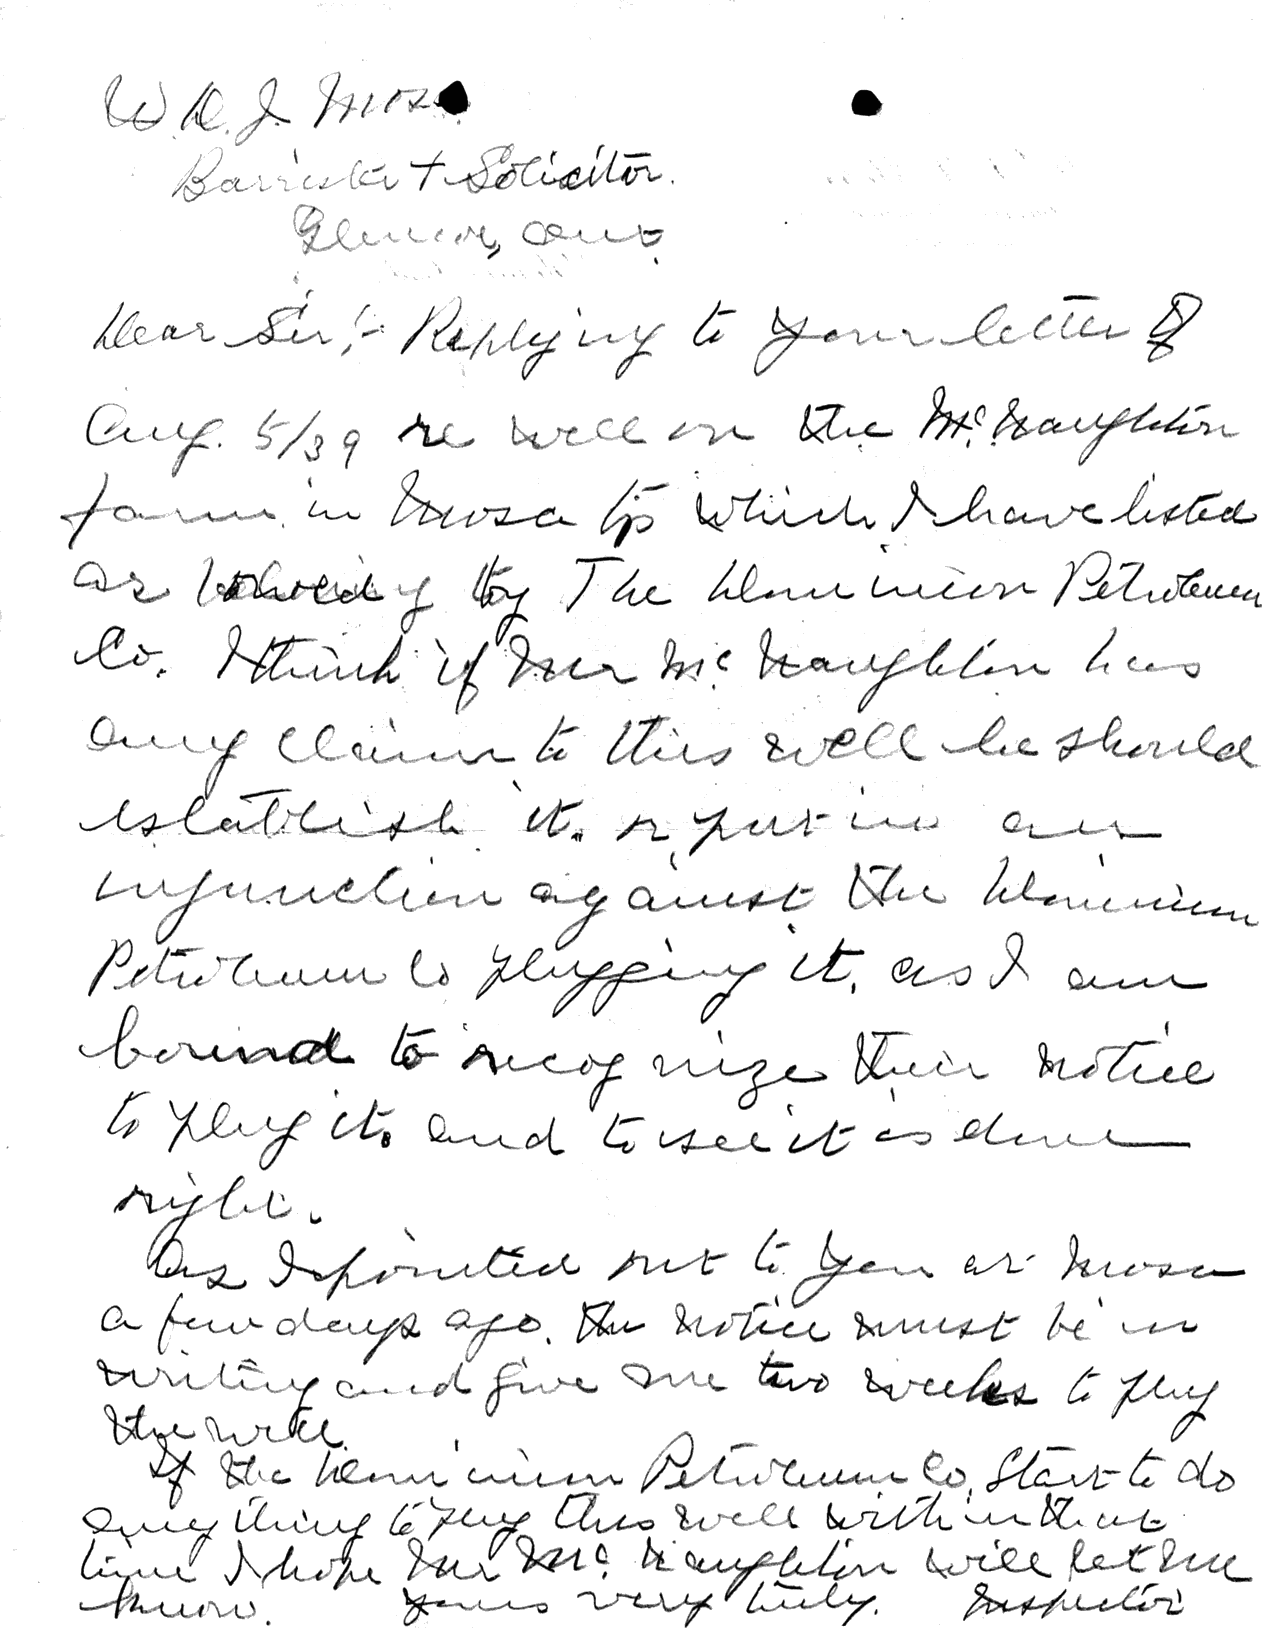 W. D. J. Moss
Barrister + Solicitor.
Glencoe, Ont.
Dear Sir:- Replying to your letter of
Aug. 5/39 re well on the McNaughton
farm in Mosa tp which I have listed
as by The Dominion Petroleum
Co. I think if Mr McNaughton has
any claim to this well he should
establish it. or put in an
injunction against the Dominion
Petroleum Co plugging it, as I am
bound to recognize their notice
to plug it. and to see it is done
right.
As I pointed out to you at Mosa
a few days ago. the notice must be in
writing and give me two weeks to plug
the well.
If the Dominion Petroleum Co. start to do
anything to plug this well within that
time I hope Mr McNaughton will let me
know. yours very truly. Inspector